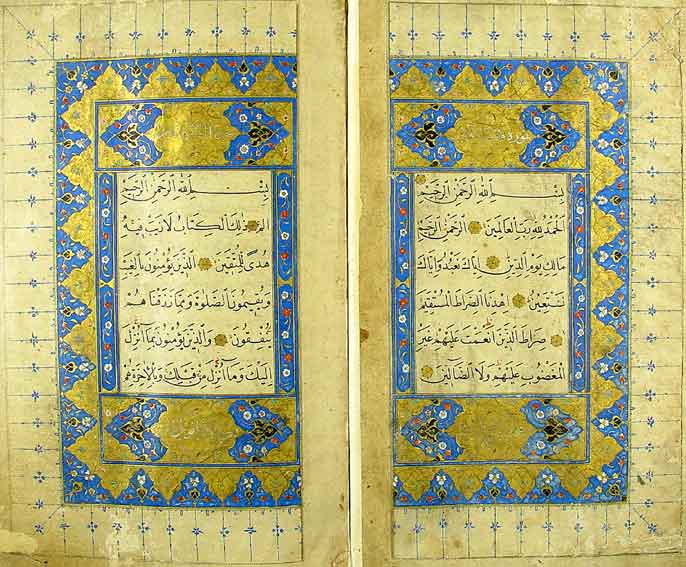 بِسْمِ اللهِ الرَّحْمٰنِ الرَّحِيمِ
اَلْحَمْدُ لِلّٰهِ رَبِّ الْعَالَمِينَ الرَّحْمٰنِ الرَّحِيمِ
مَالِكِ يَوْمِ الدِّينِ اِيَّاكَ نَعْبُدُ وَاِيَّاكَ
نَسْتَعِينُ اِهْدِنَا الصِّرَاطَ الْمُسْتَقِيمَ
صِرَاطَ الَّذِينَ اَنْعَمْتَ عَلَيْهِمْ غَيْرِ
الْمَغْضُوبِ عَلَيْهِمْ وَلَا الضَّالِّينَ
بِسْمِ اللهِ الرَّحْمٰنِ الرَّحِيمِ
الٓمٓ ذٰلِكَ الْكِتَابُ لَا رَيْبَ فِيهِ
هُدًى لِلْمُتَّقِينَ الَّذِينَ يُؤْمِنُونَ بِالْغَيْبِ
وَيُقِيمُونَ الصَّلٰوةَ وَمِمَّا رَزَقْنَاهُمْ
يُنْفِقُونَ وَالَّذِينَ يُؤْمِنُونَ بِمَا اُنْزِلَ
اِلَيْكَ وَمَا اُنْزِلَ مِنْ قَبْلِكَ وَبِالْاٰخِرَةِ هُمْ